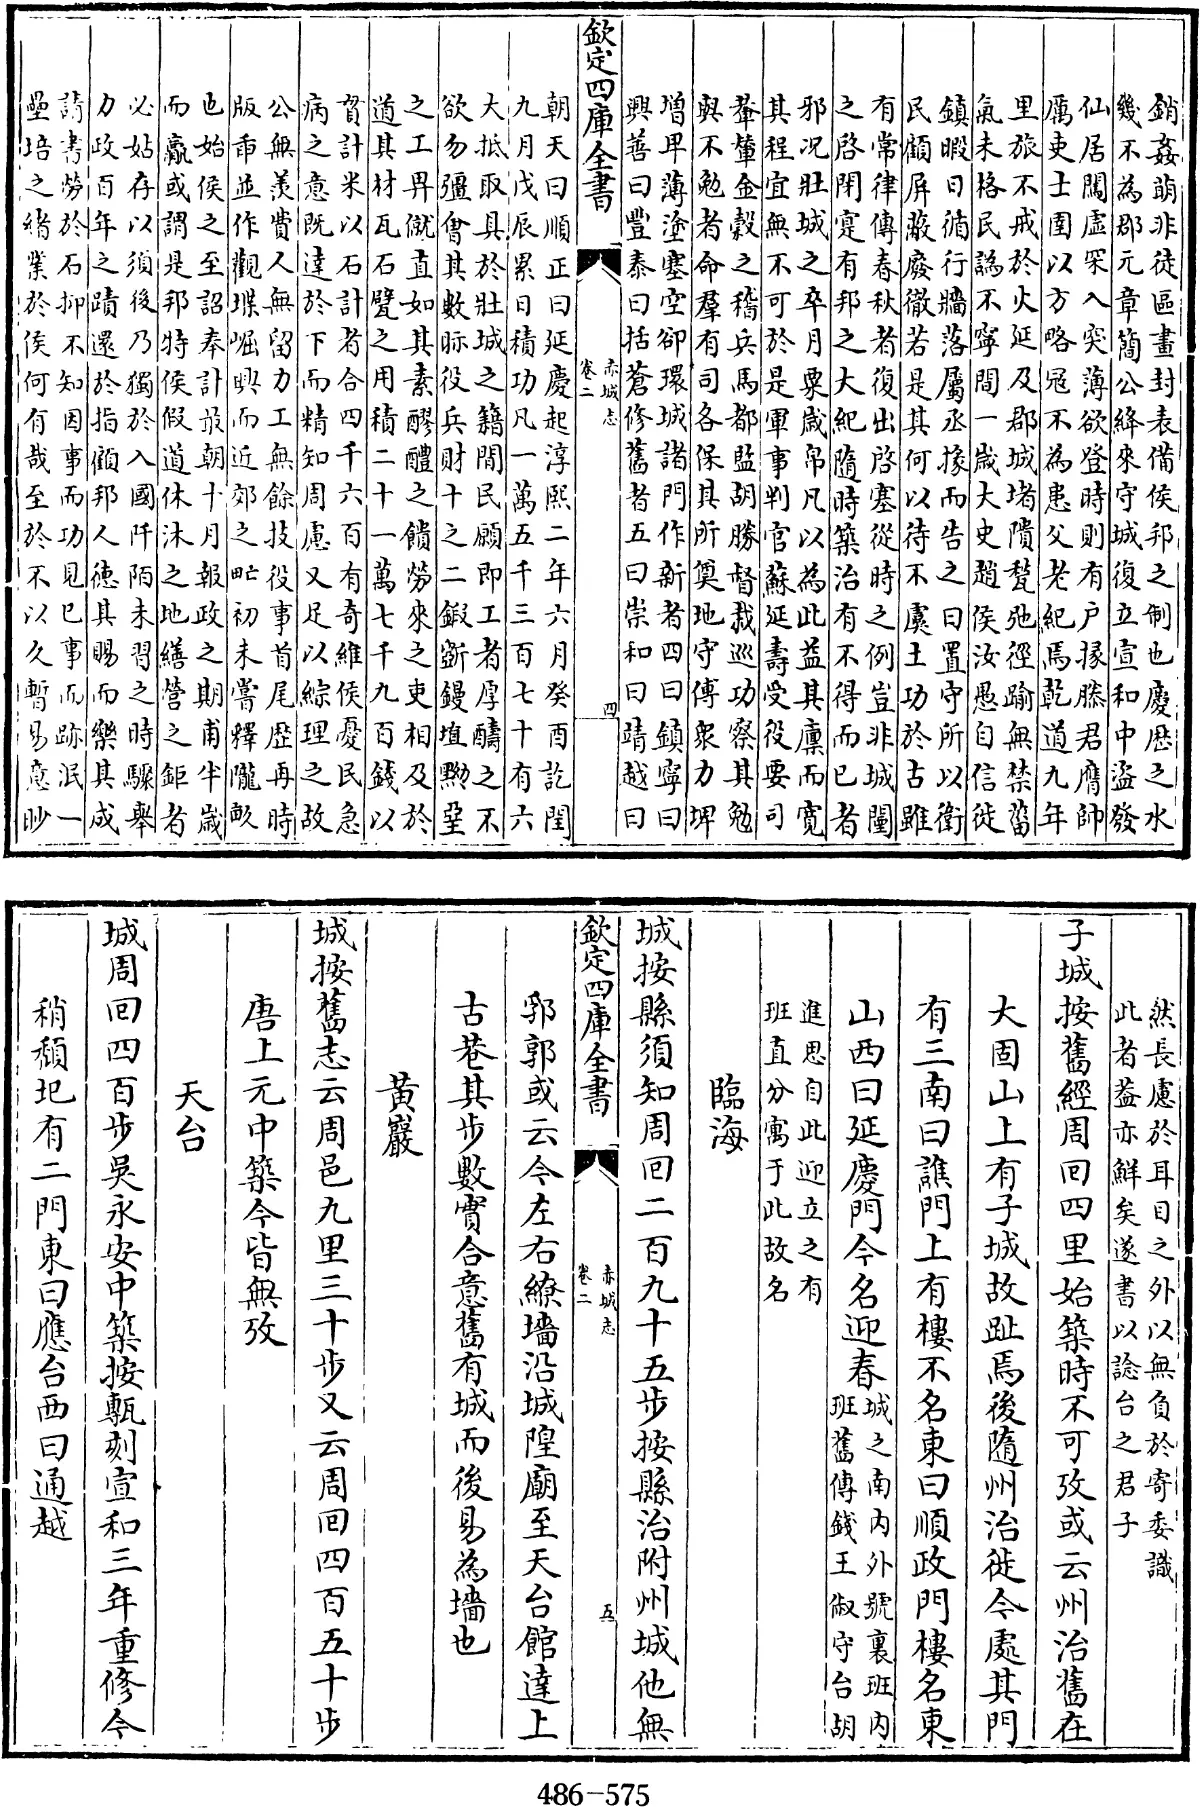 銷姦萌非徒區畫封表備侯邦之制也慶歴之水
幾不為郡元章簡公絳來守城復立宣和中盜發
仙居闖虛罙入突薄欲登時則有户掾滕君膺帥
厲吏士圉以方略冦不為患父老紀焉乾道九年
里旅不戒於火延及郡城堵隤甃弛徑踰無禁菑
氣未格民譌不寧間一歲大史趙侯汝愚自信徙
鎮暇日循行牆落屬丞掾而告之曰置守所以衛
民顧屏蔽廢徹若是其何以待不虞土功於古雖
有常律傳春秋者復出啓塞從時之例豈非城闉
之啓閉寔有邦之大紀隨時築治有不得而已者
邪况壯城之卒月粟歲帛凡以為此益其廩而寛
其程宜無不可於是軍事判官蘇延壽受役要司
金穀之稽兵馬都監胡勝督裁巡功察其勉
與不勉者命羣有司各保其所奠地守傅衆力埤
增卑薄塗塞空卻環城諸門作新者四曰鎮寧曰
興善曰豐泰曰括蒼修舊者五曰崇和曰靖越曰
欽定四庫全書
赤城志
卷二
四
朝天曰順正曰延慶起淳熙二年六月癸酉訖閏
九月戊辰累日積功凡一萬五千三百七十有六
大抵取具於壯城之籍間民願即工者厚醻之不
欲勿彊㑹其數眎役兵財十之二鍛斵鏝埴黝堊
之工畀僦直如其素醪醴之饋勞來之吏相及於
道其材瓦石甓之用積二十一萬七千九百錢以
貲計米以石計者合四千六百有奇維侯憂民急
病之意既達於下而精知周慮又足以綜理之故
公無羨費人無留力工無餘技役事首尾歴再時
版臿並作觀堞崛興而近郊之甿初未嘗釋隴畝
也始侯之至詔奉計㝡朝十月報政之期甫半歲
而贏或謂是邦特侯假道休沐之地繕營之鉅者
必姑存以須後乃獨於入國阡陌未習之時驟舉
力政百年之蹟還於指顧邦人徳其賜而樂其成
請書勞於石抑不知因事而功見已事而跡泯一
壘培之緒業於侯何有哉至於不以久暫易意眇
然長慮於耳目之外以無負於寄委識
此者蓋亦鮮矣遂書以諗台之君子
子城按舊經周回四里始築時不可攷或云州治舊在
大固山上有子城故趾焉後隨州治徙今處其門
有三南曰譙門上有樓不名東曰順政門樓名東
山西曰延慶門今名迎春
城之南内外號裏班内
班舊傳錢王俶守台胡
進思自此迎立之有
班直分寓于此故名
臨海
城按縣須知周回二百九十五步按縣治附州城他無
欽定四庫全書
赤城志
卷二
五
郛郭或云今左右繚墻沿城隍廟至天台館達上
古巷其步數實合意舊有城而後易為墻也
黃巖
城按舊志云周邑九里三十步又云周回四百五十步
唐上元中築今皆無攷
天台
城周回四百步吳永安中築按甎刻宣和三年重修今
稍頹圮有二門東曰應台西曰通越
486-575